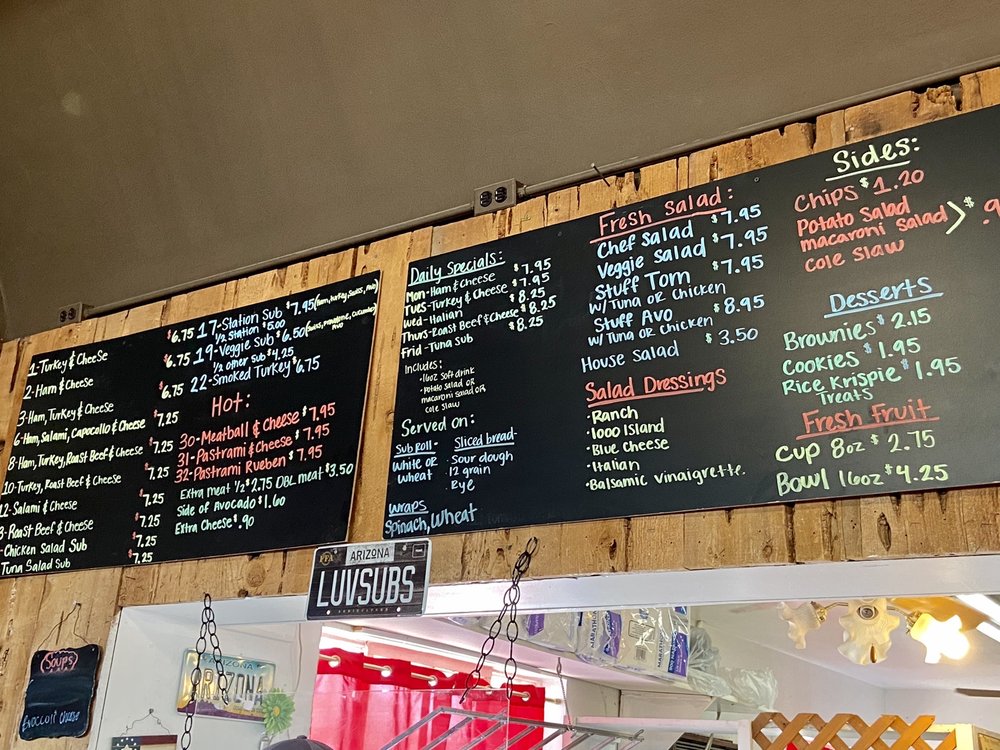 1-Turkey & Cheese $6.75
2-Ham & Cheese $6.75
3-Ham, Turkey & Cheese $6.75
6-Ham, Salami, Capocollo & Cheese $7.25
8-Ham, Turkey, Roast Beef & Cheese $7.25
10-Turkey, Roast Beef & Cheese $7.25
12-Salami & Cheese $7.25
3-Roast Beef & Cheese $7.25
-Chicken Salad Sub $7.25
Tuna Salad Sub $7.25
17-Station Sub $7.95 (Ham, turkey, Swiss, Prov)
1/2 Station $5.00
19-Veggie Sub $6.50 (Swiss, Provolone, Cucumber
Avo)
1/2 other sub $4.25
22-Smoked Turkey $6.75
Hot:
30-Meatball & Cheese $7.95
31-Pastrami & Cheese $7.95
32-Pastrami Rueben $7.95
Extra meat 1/2 $2.75 DBL meat $3.50
Side of Avocado $1.60
Extra Cheese $.90
Daily Specials:
Mon-Ham & Cheese $7.95
Tues-Turkey & Cheese $7.95
Wed-Italian $8.25
Thurs-Roast Beef & Cheese $8.25
Frid-Tuna Sub $8.25
Includes:
•16oz Soft drink
•Potato salad or
macaroni salad or
cole slaw
Served on:
Sub Roll-
White or
Wheat
Sliced bread-
•Sour dough
•12 grain
•Rye
Wraps
Spinach, Wheat
Fresh Salad:
Chef Salad $7.95
Veggie Salad $7.95
Stuff Tom $7.95
w/Tuna or Chicken
Stuff Avo $8.95
w/Tuna or Chicken
House Salad $3.50
Salad Dressings
•Ranch
•1000 Island
•Blue Cheese
•Italian
•Balsamic Vinaigrette.
Sides:
Chips $1.20
Potato Salad
macaroni Salad
Cole Slaw
Desserts
Brownies $2.15
Cookies $1.95
Rice Krispie $1.95
Treats
Fresh Fruit
Cup 8oz $2.75
Bowl 16oz $4.25
ARIZONA
LUVSUBS
Soups
Broccoli Cheese
ARIZONA
ARIZONA
MARATHON